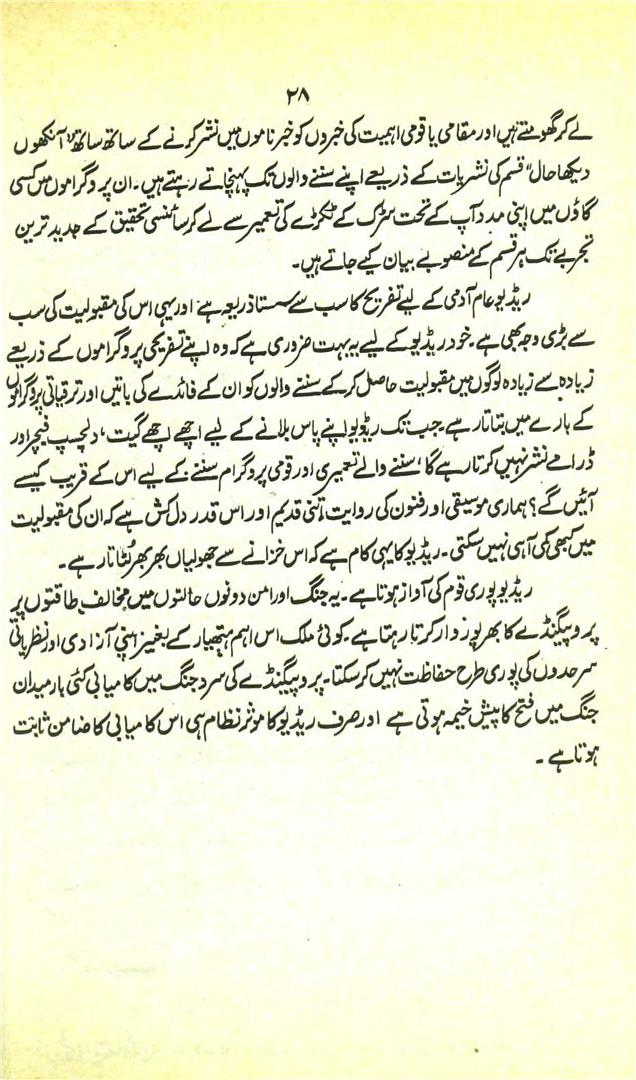 ۲۸
لے کر گھومتے ہیں اور مقامی یا قومی اہمیت کی خبروں کو خبرناموں میں نشر کرنے کے ساتھ ساتھ "آنکھوں
دیکھا حال" قسم کی نشریات کے ذریعے اپنے سننے والوں تک پہنچاتے رہتے ہیں۔ ان پروگراموں میں کسی
گاؤں میں اپنی مدد آپ کے تحت سڑک کے ٹکڑے کی تعمیر سے لے کر سائنسی تحقیق کے جدید ترین
تجربے تک ہر قسم کے منصوبے بیان کیے جاتے ہیں۔
ریڈیو عام آدمی کے لیے تفریح کا سب سے سستا ذریعہ ہے اور یہی اس کی مقبولیت کی سب
سے بڑی وجہ بھی ہے۔ خود ریڈیو کے لیے یہ بہت ضروری ہے کہ وہ اپنے تفریحی پروگراموں کے ذریعے
زیادہ سے زیادہ لوگوں میں مقبولیت حاصل کر کے سننے والوں کو ان کے فائدے کی باتیں اور ترقیاتی پروگراموں
کے بارے میں بتاتا رہے۔ جب تک ریڈیو اپنے پاس بلانے کے لیے اچھے اچھے گیت، دلچسپ فیچر اور
ڈرامے نشر نہیں کرتا رہے گا، سننے والے تعمیری اور قومی پروگرام سننے کے لیے اس کے قریب کیسے
آئیں گے؟ ہماری موسیقی اور فنون کی روایت اتنی قدیم اور اس قدر دل کش ہے کہ ان کی مقبولیت
میں کبھی کمی آ ہی نہیں سکتی۔ ریڈیو کا یہی کام ہے کہ اس خزانے سے جھولیاں بھر بھر لٹاتا رہے۔
ریڈیو پوری قوم کی آواز ہوتا ہے۔ یہ جنگ اور امن دونوں حالتوں میں مخالف طاقتوں پر
پروپیگنڈے کا بھرپور وار کرتا رہتا ہے۔ کوئی ملک اس اہم ہتھیار کے بغیر اپنی آزادی اور نظریاتی
سرحدوں کی پوری طرح حفاظت نہیں کر سکتا۔ پروپیگنڈے کی سرد جنگ میں کامیابی کئی بار میدان
جنگ میں فتح کا پیش خیمہ ہوتی ہے اور صرف ریڈیو کا موثر نظام ہی اس کامیابی کا ضامن ثابت
ہوتا ہے۔